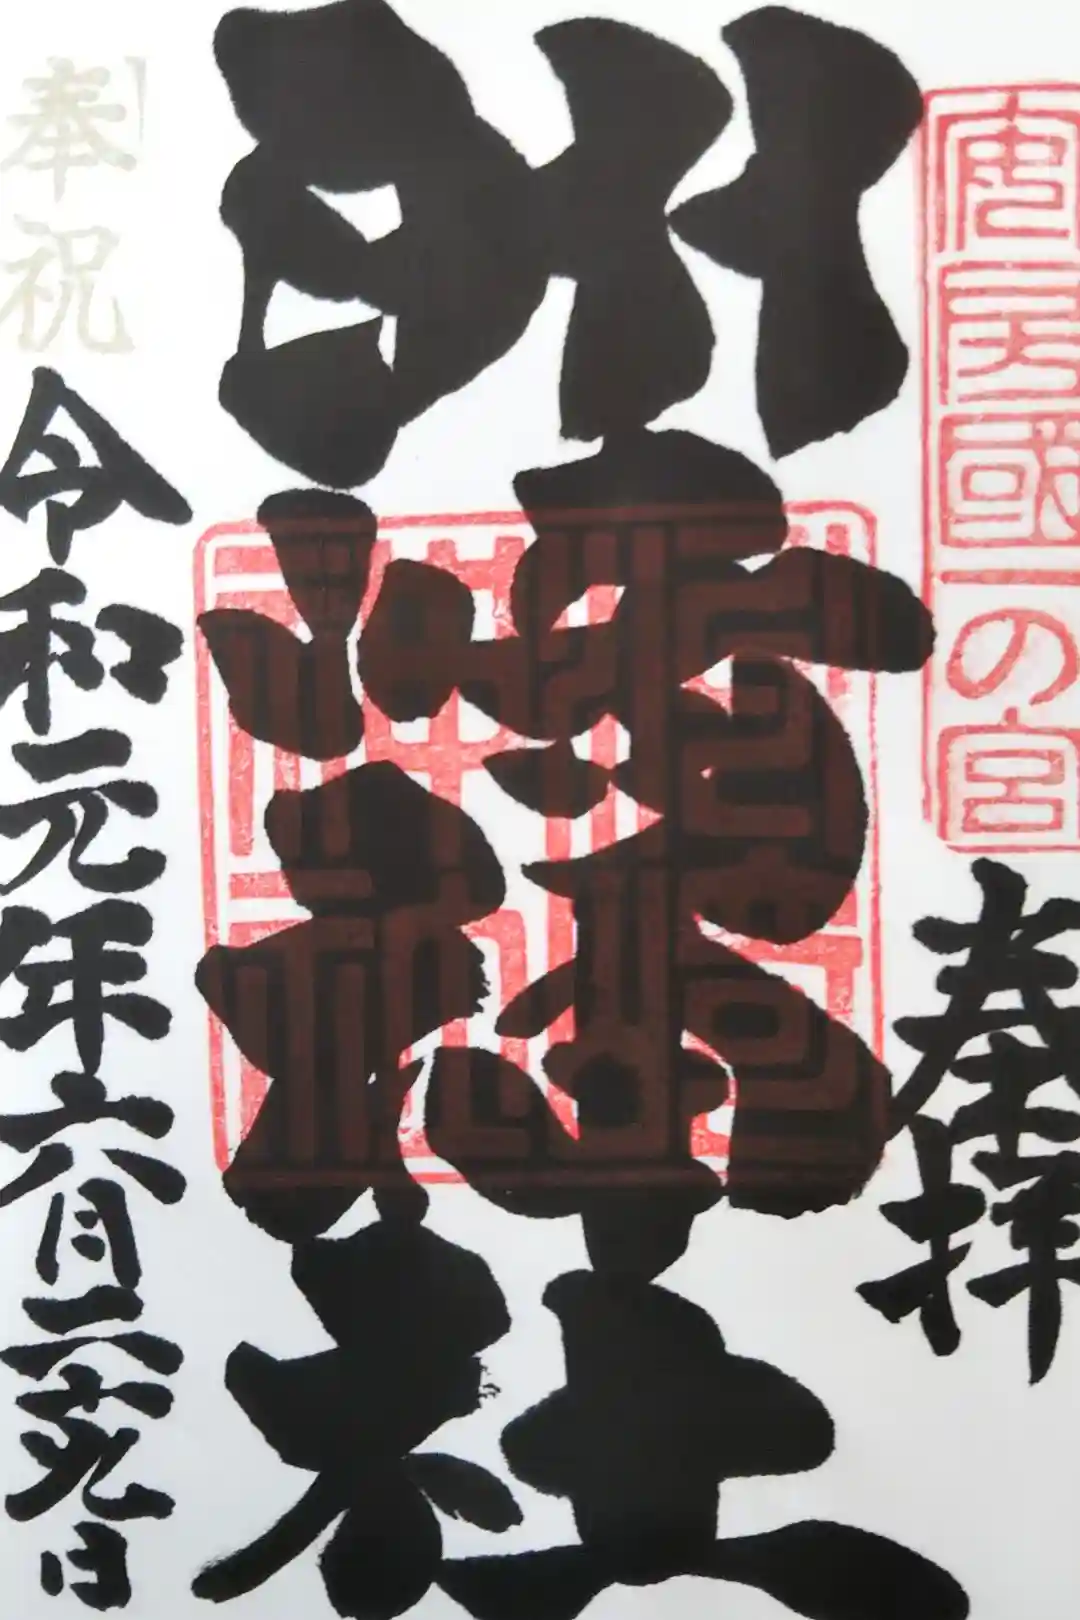 安房國一の宮
奉拝
洲崎神社
奉祝
令和元年六月二十九日